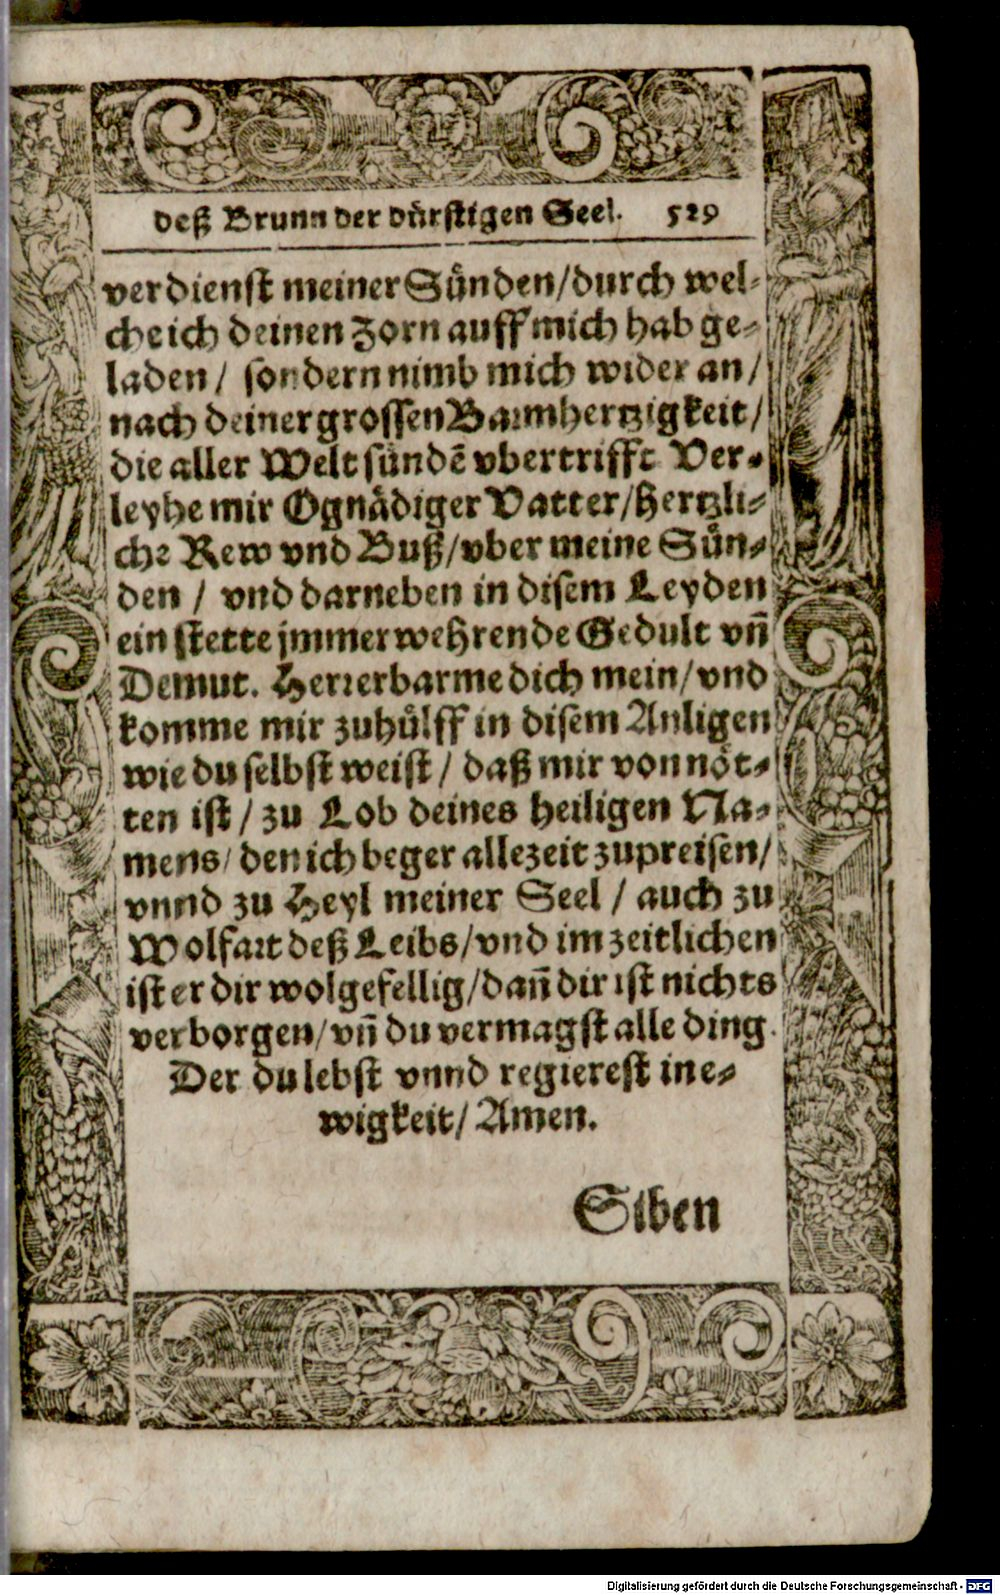 deß Brunn der dürstigen Seel. 529
verdienst meiner Sünden/durch wel-
che ich deinen Zorn auff mich hab ge-
laden/ sondern nimb mich wider an/
nach deiner grossen Barmhertzigkeit/
die aller Welt sündē vbertrifft Ver-
leyhe mir O gnädiger Vatter/hertzli-
che Rew vnd Buß/vber meine Sün-
den / vnd darneben in disem Leyden
ein stette jmmerwehrende Gedult vñ
Demut. Herr erbarme dich mein/vnd
komme mir zuhülff in disem Anligen
wie du selbst weist / daß mir vonnöt-
ten ist / zu Lob deines heiligen Na-
mens/ den ich beger allezeit zupreisen/
vnnd zu Heyl meiner Seel / auch zu
Wolfart deß Leibs/vnd im zeitlichen
ist er dir wolgefellig/dañ dir ist nichts
verborgen/vñ du vermagst alle ding.
Der du lebst vnnd regierest in e-
wigkeit/ Amen.
Siben
Digitalisierung gefördert durch die Deutsche Forschungsgemeinschaft - DFG